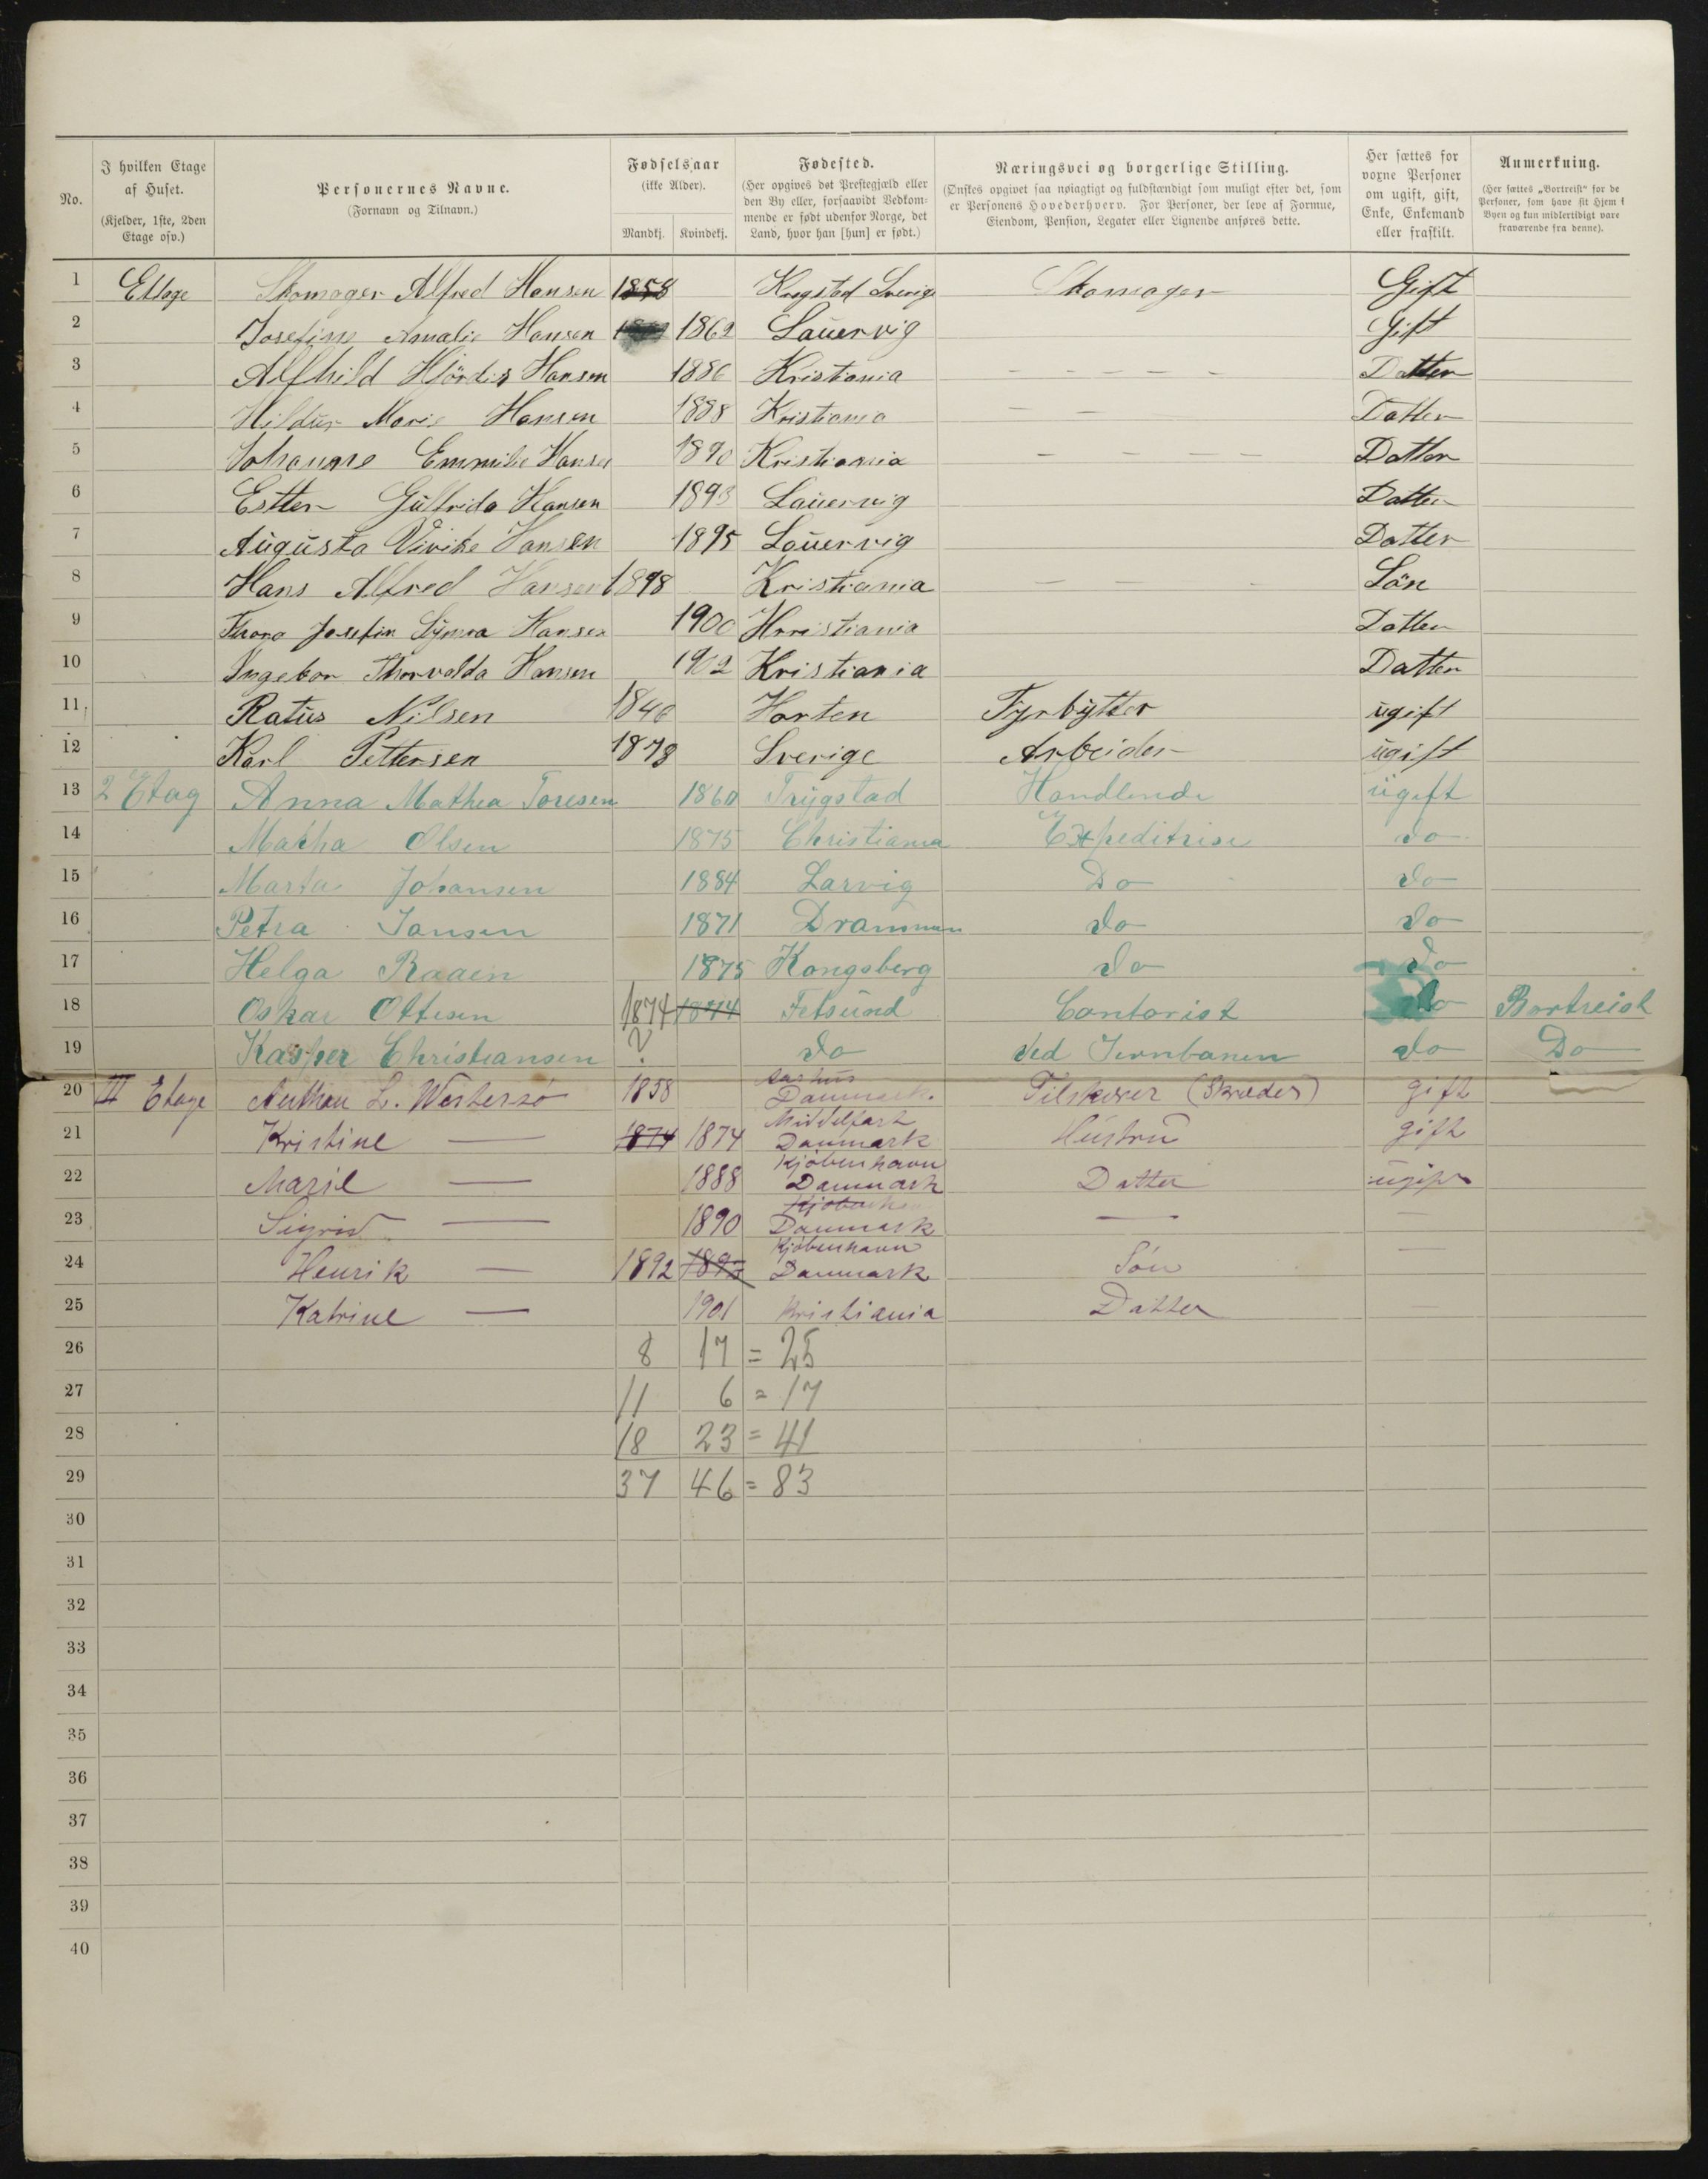 No.
I hvilken Etage af Huset.
(Kjelder, 1ste, 2den Etage osv.)
Personernes Navne.
(Fornavn og Tilnavn.)
Fødselsaar
(ikke Alder).
Mandkj. Kvindekj.
Fødested.
(Her opgives det Prestegjæld eller den By eller, forsaavidt Vedkommende er født udenfor Norge, det Land, hvor han [hun] er født.)
Næringsvei og borgerlige Stilling.
(Ønskes opgivet saa nøiagtigt og fuldstændigt som muligt efter det, som er Personens Hovederhverv. For Personer, der leve af Formue, Eiendom, Pension, Legater eller Lignende anføres dette.
Her sættes for voxne Personer om ugift, gift, Enke, Enkemand eller fraskilt.
Anmerkning.
(Her sættes „Bortreist“ for de Personer, som have sit Hjem i Byen og kun midlertidigt vare fraværende fra denne).
1 Etage Skomager Alfred Hansen 1858 Sverige Skomager Gift
2 Josefine Amalie Hansen 1862 Lauervig Gift
3 Alfhild Hjördis Hansen 1886 Kristiania — — — — — Datter
4 Hildur Marie Hansen 1888 Kristiania — — — Datter
5 Johanne Emmilie Hansen 1890 Kristiania — — — — Datter
6 Estter Gulfrida Hansen 1893 Lauervig Datter
7 Augusta Vivike Hansen 1895 Lauervig Datter
8 Hans Alfred Hansen 1898 Kristiania — — — Sön
9 Thora Josefin Hansen 1900 Kristiania Datter
10 Ingebor Thorvalda Hansen 1902 Kristiania Datter
11 Ratus Nilsen 1846 Horten Fyrbytter ugift
12 Karl Pettersen 1878 Sverige Arbeider ugift
13 2 Etag Anna Mathea Toresen 1860 Trygstad Handlende ugift
14 Matha Olsen 1875 Christiania Expeditrise do
15 Marta Johansen 1884 Larvig Do do
16 Petra Jansen 1871 Drammen do do
17 Helga Raaen 1875 Kongsberg do do
18 Oskar Ottesen 1874 1874 Fetsund Contorist do Bortreist
19 Kasper Christiansen ? do Ved Jernbanen do Do
20 III Etage L. Westersø 1858 Aarhus Danmark. Tilskjærer (Skræder) gift
21 Kristine — 1874 1874 Middelfart Danmark Hustru gift
22 Marie — 1888 Kjøbenhavn Danmark Datter ugift
23 Sigrid — 1890 Danmark — —
24 Henrik — 1892 Kjøbenhavn Danmark Søn —
25 Katrine — 1901 Kristiania Datter —
26 8 17 = 25
27 11 6 = 17
28 18 23 = 41
29 37 46 = 83
30
31
32
33
34
35
36
37
38
39
40